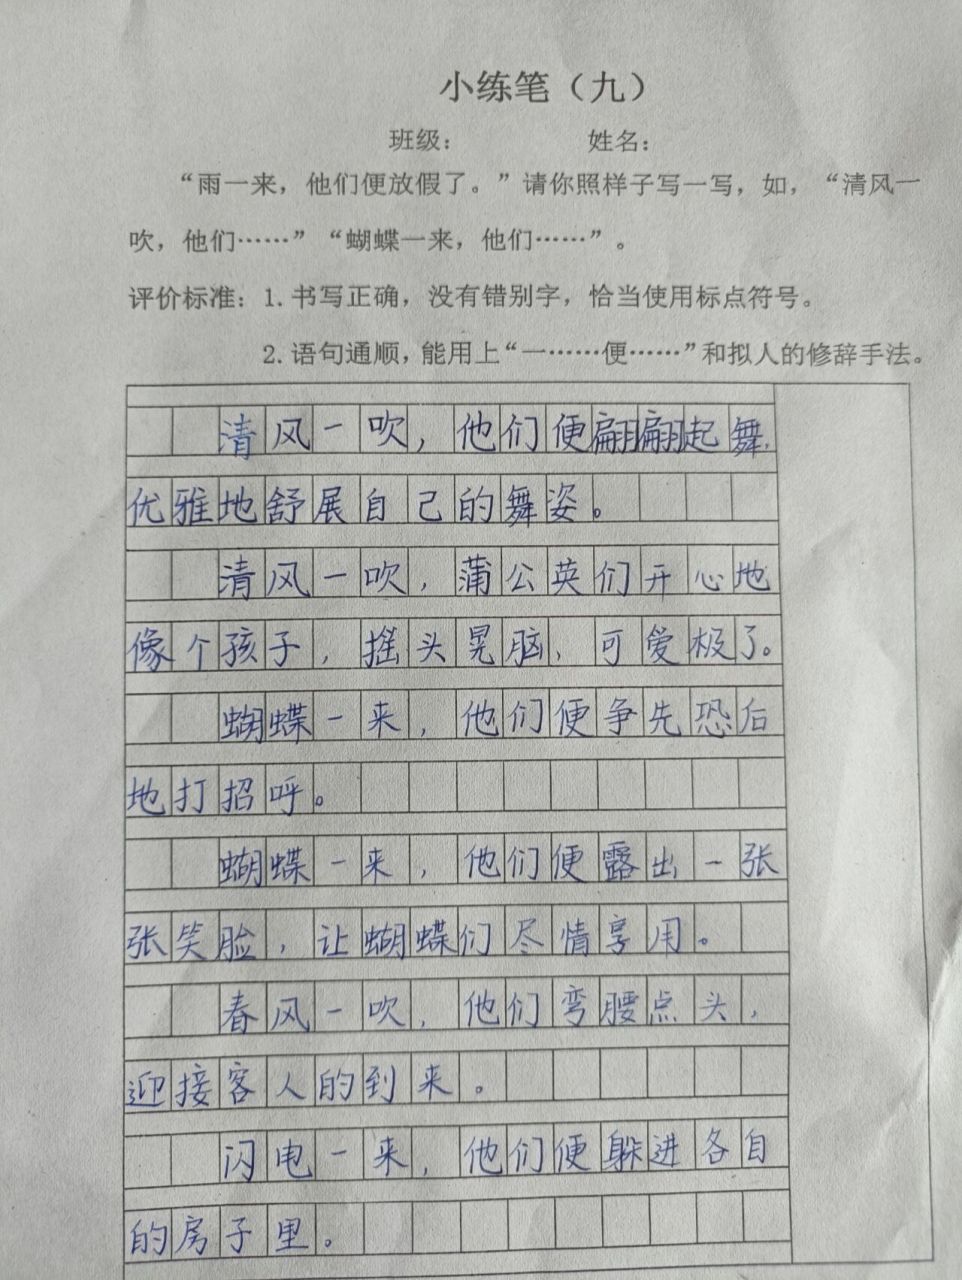 小练笔（九）
班级： 姓名：
“雨一来，他们便放假了。”请你照样子写一写，如，“清风一
吹，他们……”“蝴蝶一来，他们……”。
评价标准：1.书写正确，没有错别字，恰当使用标点符号。
2.语句通顺，能用上“一……便……”和拟人的修辞手法。
清风一吹，他们便翩翩起舞，
优雅地舒展自己的舞姿。
清风一吹，蒲公英们开心地
像个孩子，摇头晃脑，可爱极了。
蝴蝶一来，他们便争先恐后
地打招呼。
蝴蝶一来，他们便露出一张
张笑脸，让蝴蝶们尽情享用。
春风一吹，他们弯腰点头，
迎接客人的到来。
闪电一来，他们便躲进各自
的房子里。